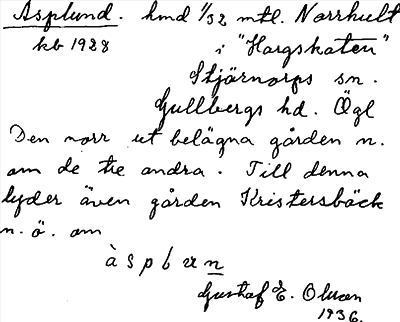 Asplund. hmd 1/32 mtl. Norrhult
kb 1928 i "Hargskaten"
Stjärnorps sn.
Gullbergs hd. Ögl
Den norr ut belägna gården n.
om de tre andra. Till denna
lyder även gården Kristersbäck
n. ö. om
àspbun
Gustaf E. Olsson
1936.